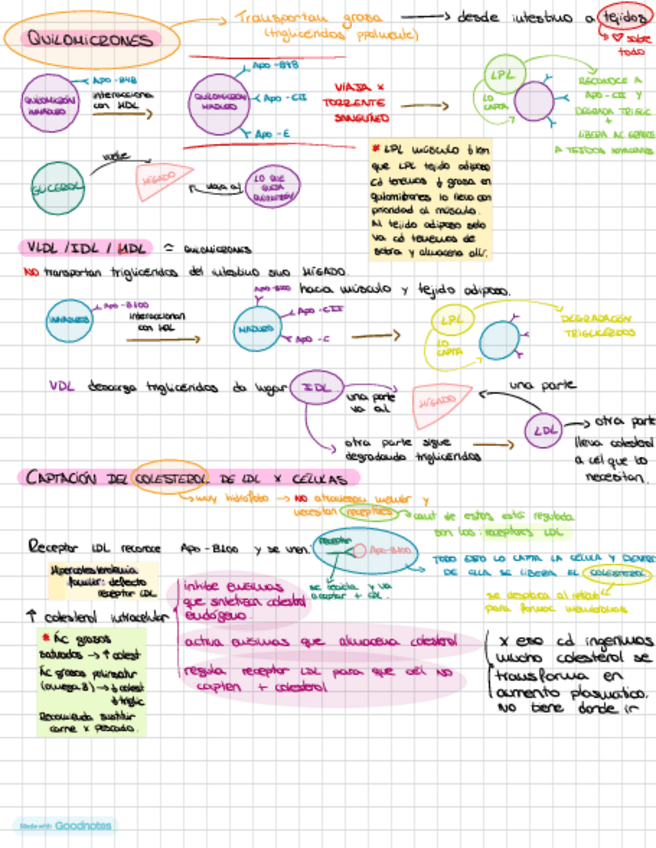 QUILOMICRONES
Transportan grasa → desde intestino a tejidos
(triglicéridos ppalmente)
♡ sobre
todo
QUILOMICRÓN
INMADURO
Apo-B48
interacciona
con HDL
QUILOMICRÓN
MADURO
Apo-B48
Apo-CII
Apo-E
VIAJA X
TORRENTE
SANGUÍNEO
LPL
LO
CAPTA
RECONOCE A
APO-CII Y
DEGRADA TRIGLIC
+
LIBERA AC GRASOS
A TEJIDOS
GLICEROL
vuelve
HÍGADO
viaja al
LO QUE
QUEDA
* LPL músculo ≠ km
que LPL tejido adiposo
cd tenemos ↓ grasa en
quilomicrones lo lleva con
prioridad al músculo.
Al tejido adiposo solo
va cd tenemos de
sobra y almacena allí.
VLDL / IDL / LDL = QUILOMICRONES
NO transportan triglicéridos del intestino sino HÍGADO.
hacia músculo y tejido adiposo.
INMADURO
Apo-B100
interaccionan
con HDL
MADURO
Apo-B100
Apo-CII
LPL
LO
CAPTA
DEGRADACIÓN
TRIGLICÉRIDOS
VLDL descarga triglicéridos da lugar IDL
una parte
va al
HÍGADO
una parte
LDL
otra parte
lleva colesterol
a cél que lo
necesitan.
otra parte sigue
degradando triglicéridos
CAPTACIÓN DEL COLESTEROL DE LDL X CÉLULAS
muy hidrófobo → NO atraviesan membr y
necesitan receptores
cant de estos está regulada
por los receptores LDL
Receptor LDL reconoce Apo-B100 y se unen.
receptor
Apo-B100
TODO ESTO LO CAPTA LA CÉLULA Y DENTRO
DE ELLA SE LIBERA EL COLESTEROL
se recicla y va
a captar + LDL.
se desplaza al retículo
para formar membranas
Hipercolesterolemia
familiar: defecto
receptor LDL
↑ colesterol intracelular
inhibe enzimas
que sintetizan colesterol
endógeno.
activa enzimas que almacena colesterol
regula receptor LDL para que cél NO
capten + colesterol
* Ác grasos
saturados → ↑ colest
Ác grasos poliinsatur
(omega 3) → ↓ colest
↓ triglic
Recomienda sustituir
carne x pescado.
x eso cd ingerimos
mucho colesterol se
transforma en
aumento plasmático.
No tiene donde ir
Made with Goodnotes